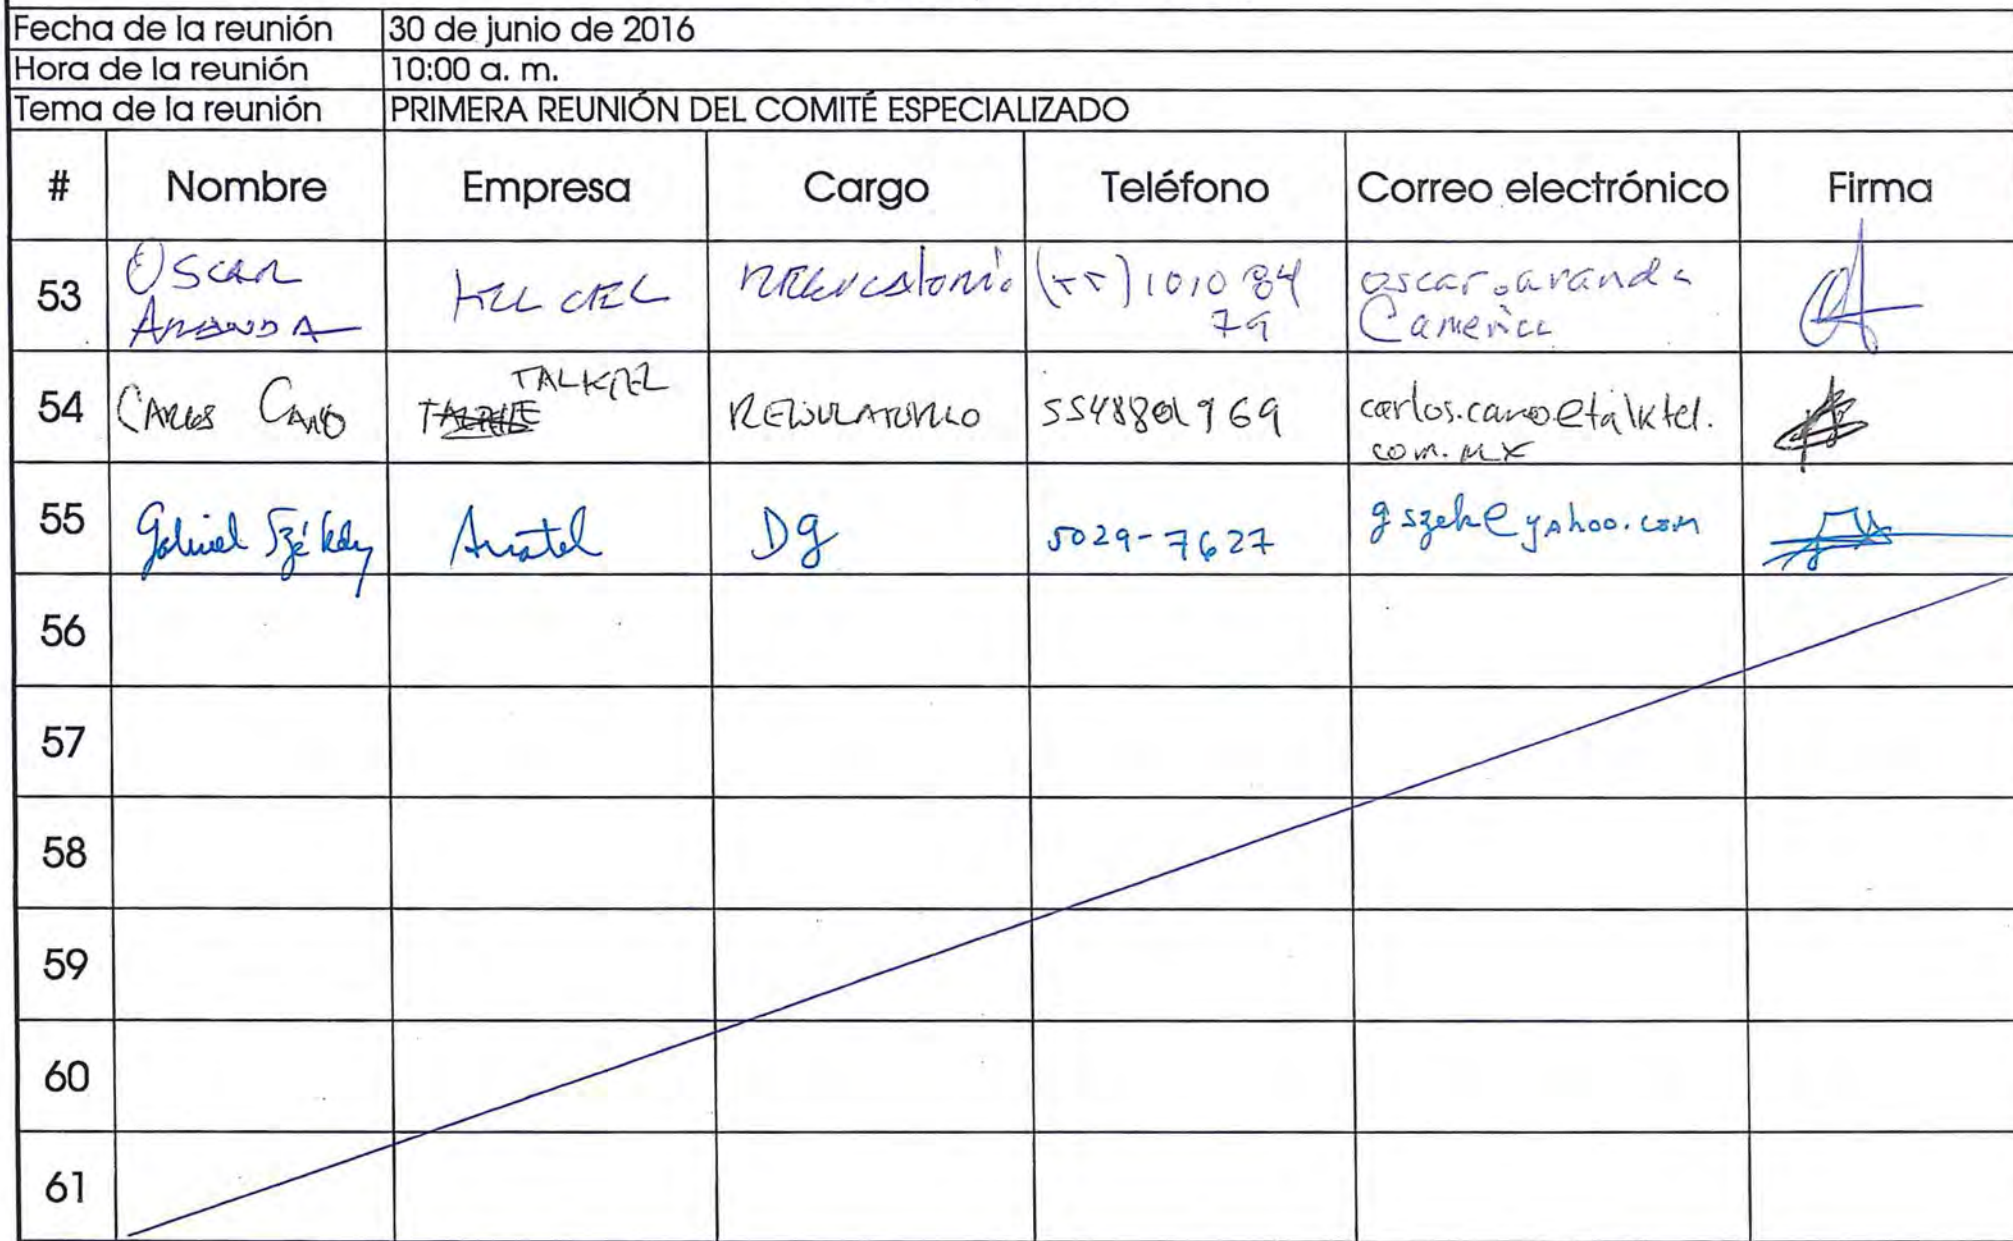 Fecha de la reunión 30 de junio de 2016
Hora de la reunión 10:00 a. m.
Tema de la reunión PRIMERA REUNIÓN DEL COMITÉ ESPECIALIZADO
# Nombre Empresa Cargo Teléfono Correo electrónico Firma
53 OSCAR ARANDA TELCEL REGULATORIO (55) 1010 84 79 oscar.aranda
@america
54 CARLOS CANO TALKTEL REGULATORIO 5548801969 carlos.cano@talktel.
com.mx
55 Gabriel Székely Anatel Dg 5029-7627 gszek@yahoo.com
56
57
58
59
60
61